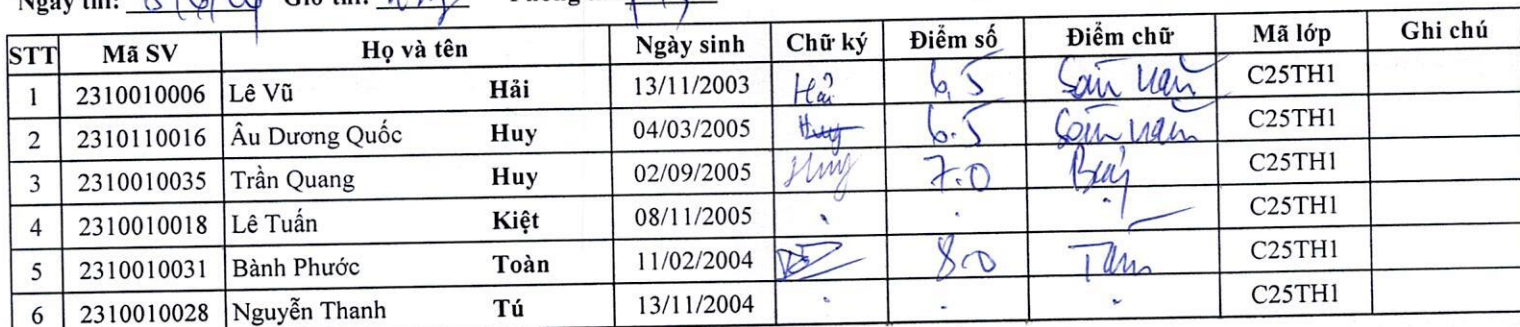 Ngày thi: Giờ thi:
STT Mã SV Họ và tên Ngày sinh Chữ ký Điểm số Điểm chữ Mã lớp Ghi chú
1 2310010006 Lê Vũ Hải 13/11/2003 Hải 6,5 Sáu năm C25TH1
2 2310110016 Âu Dương Quốc Huy 04/03/2005 Huy 6.5 Sáu năm C25TH1
3 2310010035 Trần Quang Huy 02/09/2005 Huy 7.0 Bảy C25TH1
4 2310010018 Lê Tuấn Kiệt 08/11/2005 C25TH1
5 2310010031 Bành Phước Toàn 11/02/2004 8.0 Tám C25TH1
6 2310010028 Nguyễn Thanh Tú 13/11/2004 C25TH1